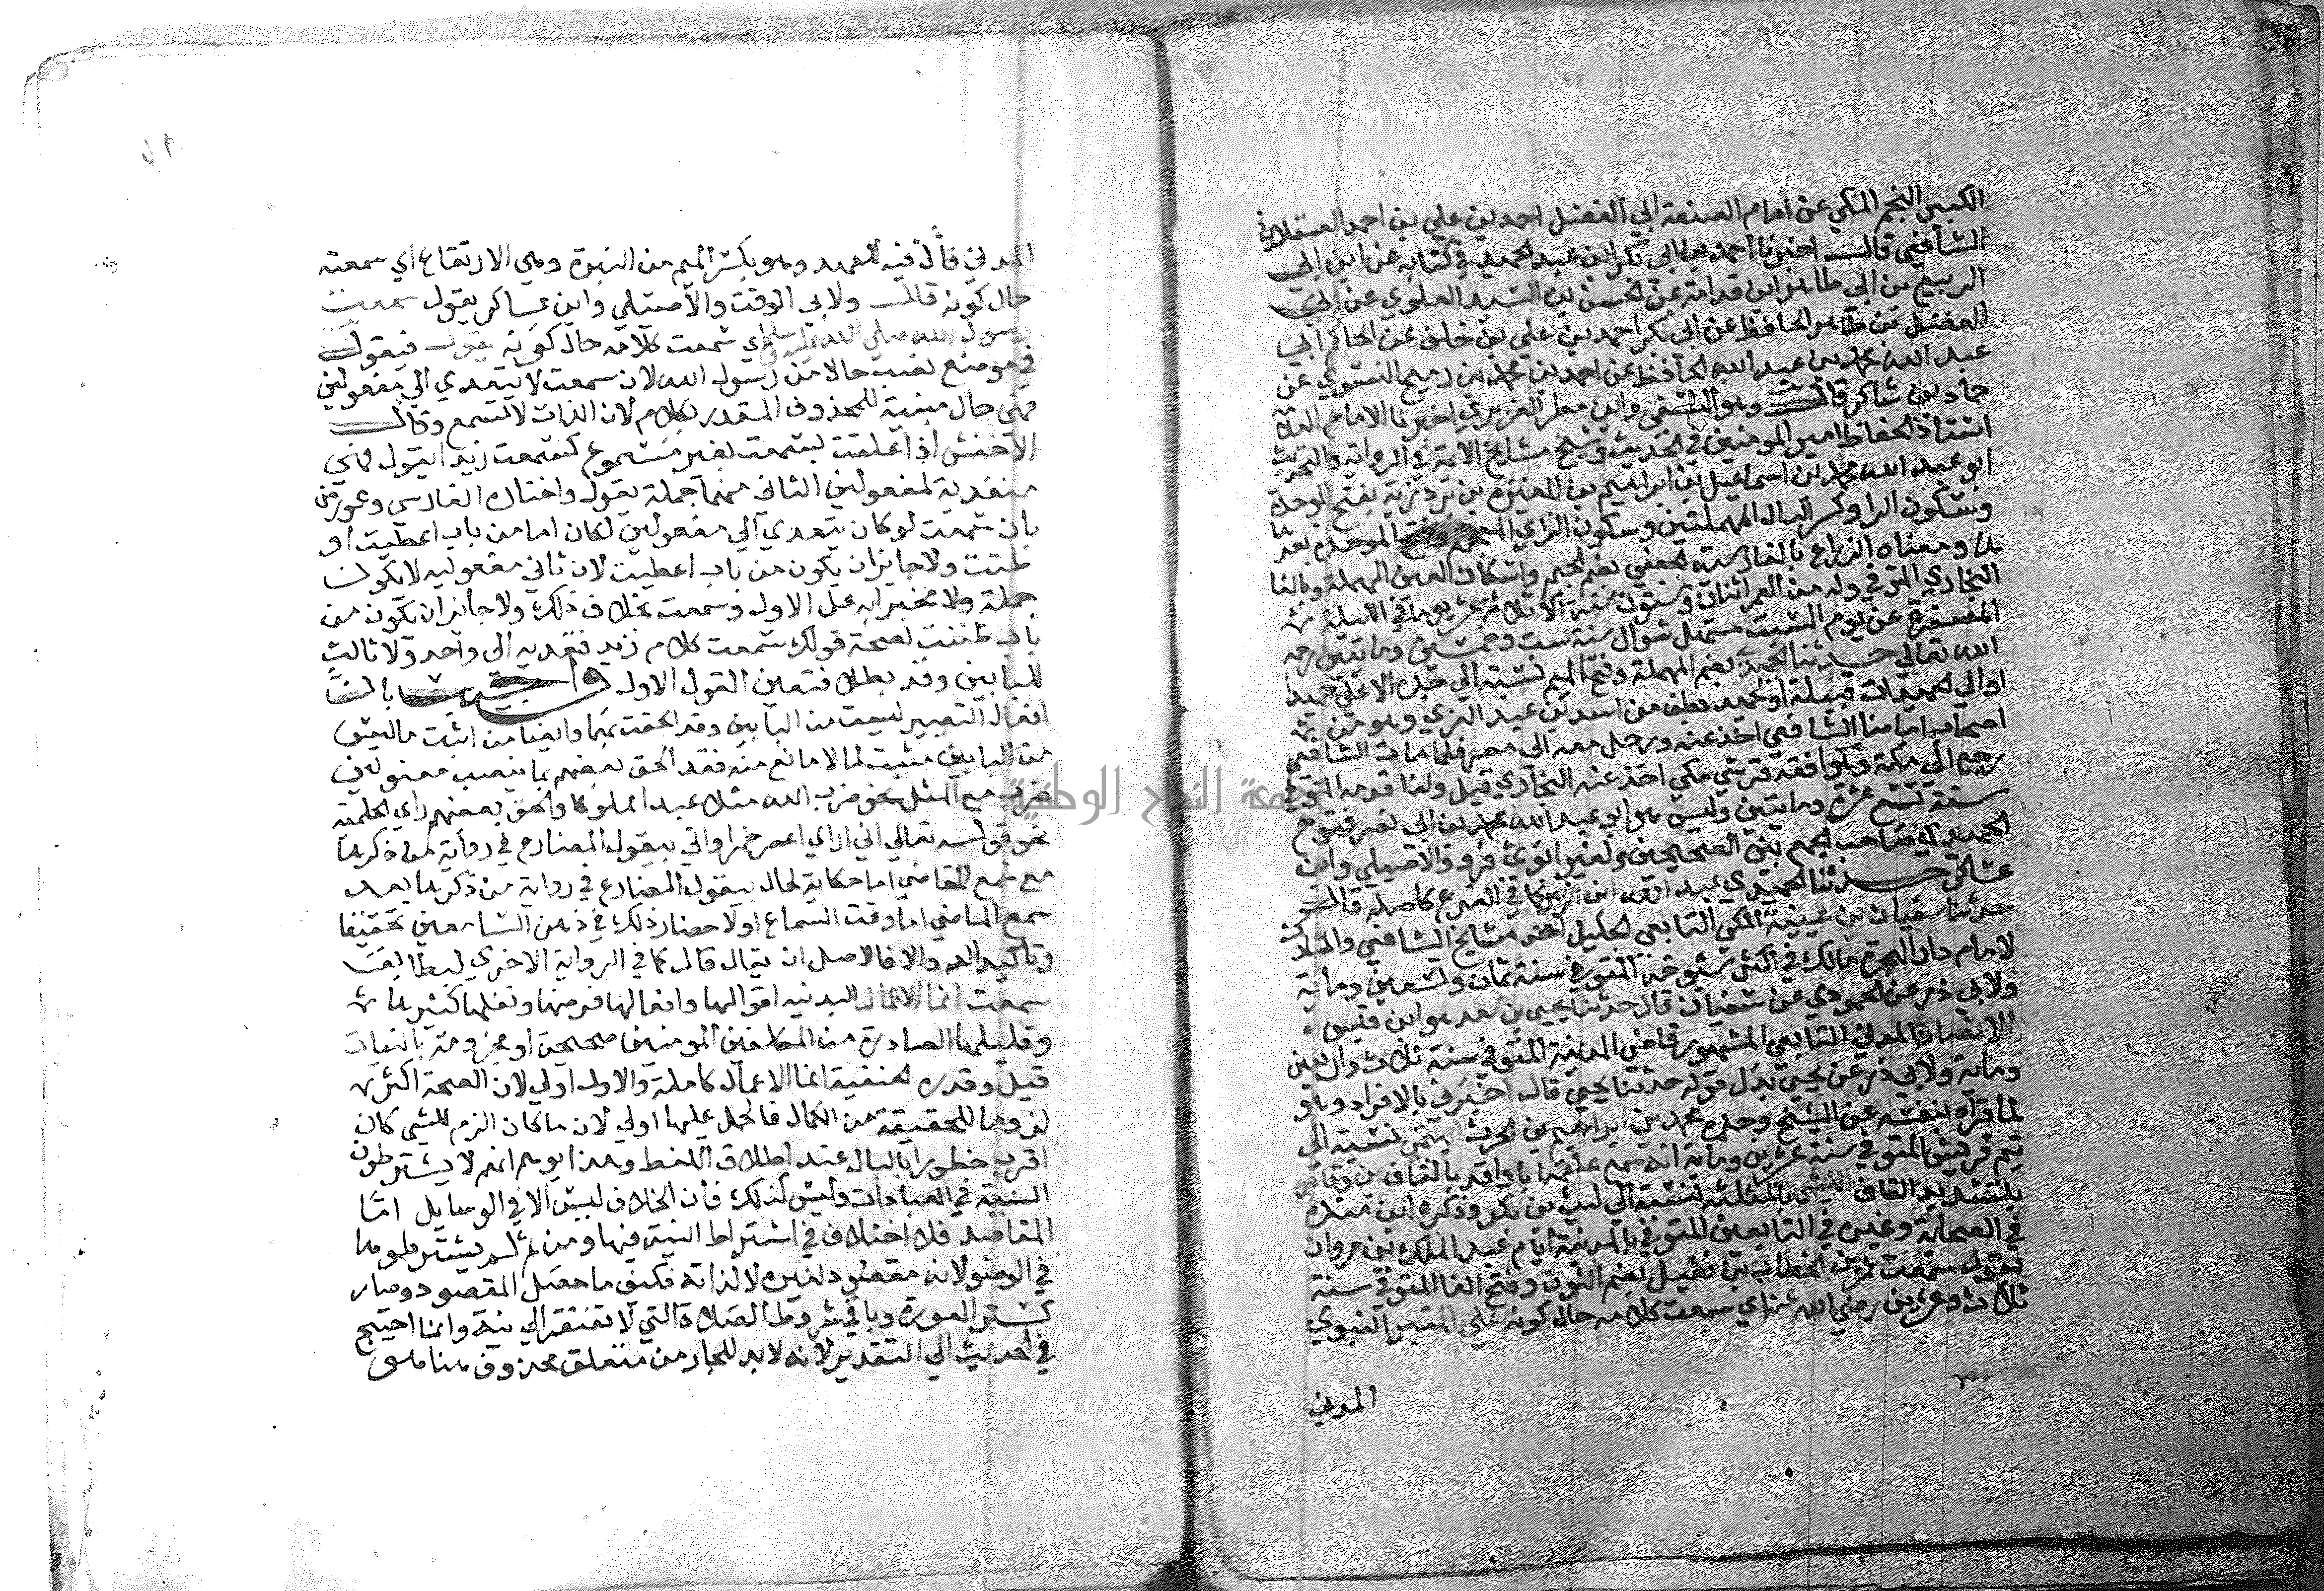 الكبير النجم المكي عن امام الصنعة ابي الفضل احمد بن علي بن احمد العسقلاني
الشافعي قال اخبرنا احمد بن ابي بكر ابن عبد الحميد في كتابه عن ابن ابي
الربيع بن ابي طاهر ابن قدامة عن الحسن بن السيد العلوي عن ابي
الفضل بن طاهر الحافظ عن ابي بكر احمد بن علي بن خلف عن الحاكم ابي
عبد الله محمد بن عبد الله الحافظ عن احمد بن محمد بن رميح النسوي عن
حماد بن شاكر قال وهو النسفي وابن مطر الفربري اخبرنا الامام العلامة
استاذ الحفاظ امير المومنين في الحديث وشيخ مشايخ الائمة في الرواية والتحديث
ابو عبد الله محمد بن اسماعيل بن ابراهيم بن المغيرة بن بردزبه بفتح الموحدة
وسكون الرا وكسر الدال المهملتين وسكون الزاي المعجمة وفتح الموحدة بعدها
ها ومعناه الزراع بالفارسية الجعفي بضم الجيم واسكان العين المهملة وبالفا
البخاري المتوفي وله من العمر اثنان وستون سنة الا ثلاثة عشر يوما في الليلة
المسفرة عن يوم السبت مستهل شوال سنة ست وخمسين وماتين رحمه
الله تعالي حدثنا الحميدي بضم المهملة وفتح الميم نسبته الي جده الاعلي حميد
او الي الحميدات قبيلة او الحميد بطن من اسد بن عبد العزي وهو من
اصحاب امامنا الشافعي اخذ عنه ورحل معه الي مصر فلما مات الشافعي
رجع الي مكة وهو افقه قرشي مكي اخذ عنه البخاري قيل ولذا قدمه المتوفي
سنة تسع عشرة وماتين وليس هو ابو عبد الله محمد بن ابي نصر فتوح
الحميدي صاحب الجمع بين الصحيحين ولغير ابوي ذر و والاصيلي وابن
عساكر حدثنا الحميدي عبد الله ابن الزبير كما في الفرع كاصله قال
حدثنا سفيان بن عيينة المكي التابعي الجليل احد مشايخ الشافعي والمشارك
لامام دار الهجرة مالك في اكثر شيوخه المتوفي سنة ثمان وتسعين وماية
ولابي ذر عن الحموي عن سفيان قال حدثنا يحيي بن سعد هو ابن قيس
الانصاري المدني التابعي المشهور قاضي المدينة المتوفي سنة ثلاث واربعين
وماية ولابي ذر عن يحيي بدل قوله حدثنا يحيي قال اخبرني بالافراد وهو
لما قراه بنفسه عن الشيخ وحده محمد بن ابراهيم بن الحرث التيمي نسبته الي
تيم قريش المتوفي سنة عشرين وماية انه سمع علقمة ابا واقد بالقاف بن وقاص
بتشديد القاف الليثي بالمثلثة نسبته الي ليث بن بكر وذكره ابن منده
في الصحابة وغيره في التابعين المتوفي بالمدينة ايام عبد الملك بن مروان
يقول سمعت عمر بن الخطاب بن نفيل بضم النون وفتح الفا المتوفي سنة
ثلاث وعشرين رضي الله عنه اي سمعت كلامه حال كونه علي المنبر النبوي
المدني
المدني فال فيه للعهد وهو بكسر الميم من النبرة وهي الارتفاع اي سمعته
حال كونه قال ولابي الوقت والاصيلي وابن عساكر يقول سمعت
رسول الله صلي الله عليه وسلم اي سمعت كلامه حال كونه يقول فيقول
في موضع نصب حالا من رسول الله لان سمعت لا يتعدي الي مفعولين
فهي حال مبينة للمحذوف المقدر بكلام لان الذات لا تسمع وقال
الاخفش اذا علقت بسمعت بغير مسموع كسمعت زيدا يقول فهي
متعدية لمفعولين الثاني منهما جملة يقول واختاره الفارسي وعورض
بان سمعت لو كان يتعدي الي مفعولين لكان اما من باب اعطيت او
ظننت ولا جايز ان يكون من باب اعطيت لان ثاني مفعوليه لا يكون
جملة ولا مخبرا به عن الاول وسمعت بخلاف ذلك ولا جايز ان يكون من
باب ظننت لصحة قولك سمعت كلام زيد فتعديه الي واحد ولا ثالث
للبابين وقد بطلا فتعين القول الاول واجيب بان
افعال التصيير ليست من البابين وقد الحقت بهما وايضا من اثبت ما ليس
من البابين مثبت لما لا مانع منه فقد الحق بعضهم بما ينصب مفعولين
ضرب مع المثل نحو ضرب الله مثلا عبدا مملوكا والحق بعضهم راي الحلمية
نحو قوله تعالي اني اراني اعصر خمرا واتي بيقول المضارع في رواية من ذكرها
مع سمع الماضي اما حكاية لحال بيقول المضارع في رواية من ذكرها بعد
سمع الماضي اما وقت السماع او لاحضار ذلك في ذهن السامعين تحقيقا
وتاكيدا له والا فالاصل ان يقال قال كما في الرواية الاخري ليطابق
سمعت انما الاعمال البدنيه اقوالها وافعالها فرضها ونفلها كثيرها
وقليلها الصادرة من المكلفين المومنين صحيحة او مجزومة بالنيات
قيل وقدره الحنفية انما الاعمال كاملة والاول اولي لان الصحة اكثر
لزوما للحقيقة من الكمال فالحمل عليها اولي لان ما كان الزم للشي كان
اقرب خطورا بالبال عند اطلاق اللفظ وهذا يوهم انهم لا يشترطون
النية في العبادات وليس كذلك فان الخلاف ليس الا في الوسايل اما
المقاصد فلا اختلاف في اشتراط النية فيها ومن ثم لم يشترطوها
في الوضو لانه مقصود لغيره لا لذاته فكيف ما حصل المقصود وصار
كستر العورة وباقي شروط الصلاة التي لا تفتقر الي نية وانما احتيج
في الحديث الي التقدير لانه لا بد للجار من متعلق محذوف هنا هو
جامعة النجاح الوطنية